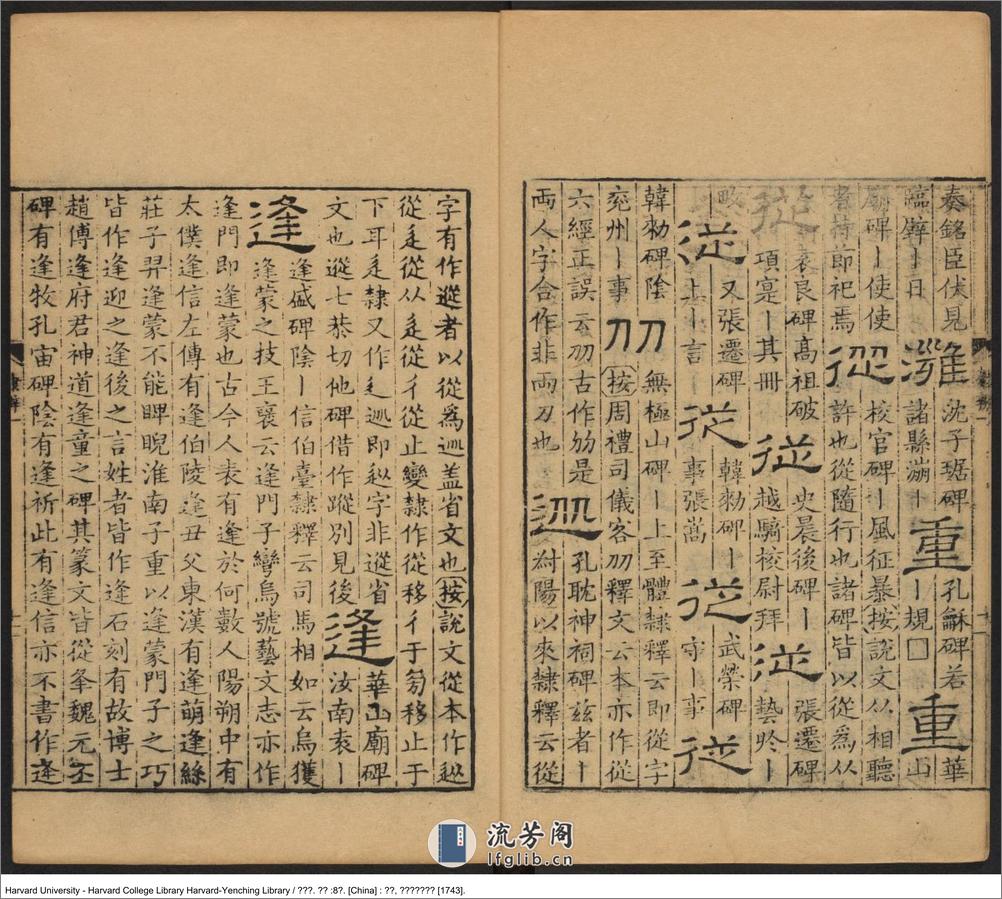 秦銘臣伏見
臨辟〡日
灉
沈子琚碑
諸縣湔〡
重
孔龢碑若
〡規□
重
華
山
廟碑〡使使
者持節祀焉
從
校官碑〡風征暴按說文从相聽
許也從隨行也諸碑皆以從為从
從
袁良碑高祖破
項寔〡其冊
従
史晨後碑〡
越騎校尉拜
従
張遷碑
藝於〡
畋
従
又張遷碑
上〡言
従
韓勑碑〡
事張嵩
従
武榮碑
守〡事
従
韓勑碑陰
兖州〡事
刀刀
無極山碑〡上至體隸釋云即從字
按周禮司儀客刕釋文云本亦作從
六經正誤云刕古作芻是
两人字合作非两刀也
孔耽神祠碑兹者〡
尌陽以來隸釋云從
字有作遳者以從為巡盖省文也按說文從本作䢐
從辵從从辵從彳從止變隸作從移彳于芻移止于
下耳辵隸又作辶巡即䢐字非遳省
文也遳七恭切他碑借作蹤別見後
逢
華山廟碑
汝南袁〡
逢
逢盛碑陰〡信伯臺隸釋云司馬相如云烏獲
逢蒙之技王襃云逢門子彎烏號藝文志亦作
逢門即逢蒙也古今人表有逢於何數人陽朔中有
太僕逢信左傳有逢伯陵逢丑父東漢有逢萌逢絲
莊子羿逢蒙不能睥睨淮南子重以逢蒙門子之巧
皆作逢迎之逢後之言姓者皆作逄石刻有故博士
趙傅逢府君神道逢童之碑其篆文皆從夆魏元丕
碑有逢牧孔宙碑陰有逢祈此有逢信亦不書作逄
隸辨一
流芳阁
lfglib.cn
Harvard University - Harvard College Library Harvard-Yenching Library / ???. ?? :8?. [China] : ??, ??????? [1743].